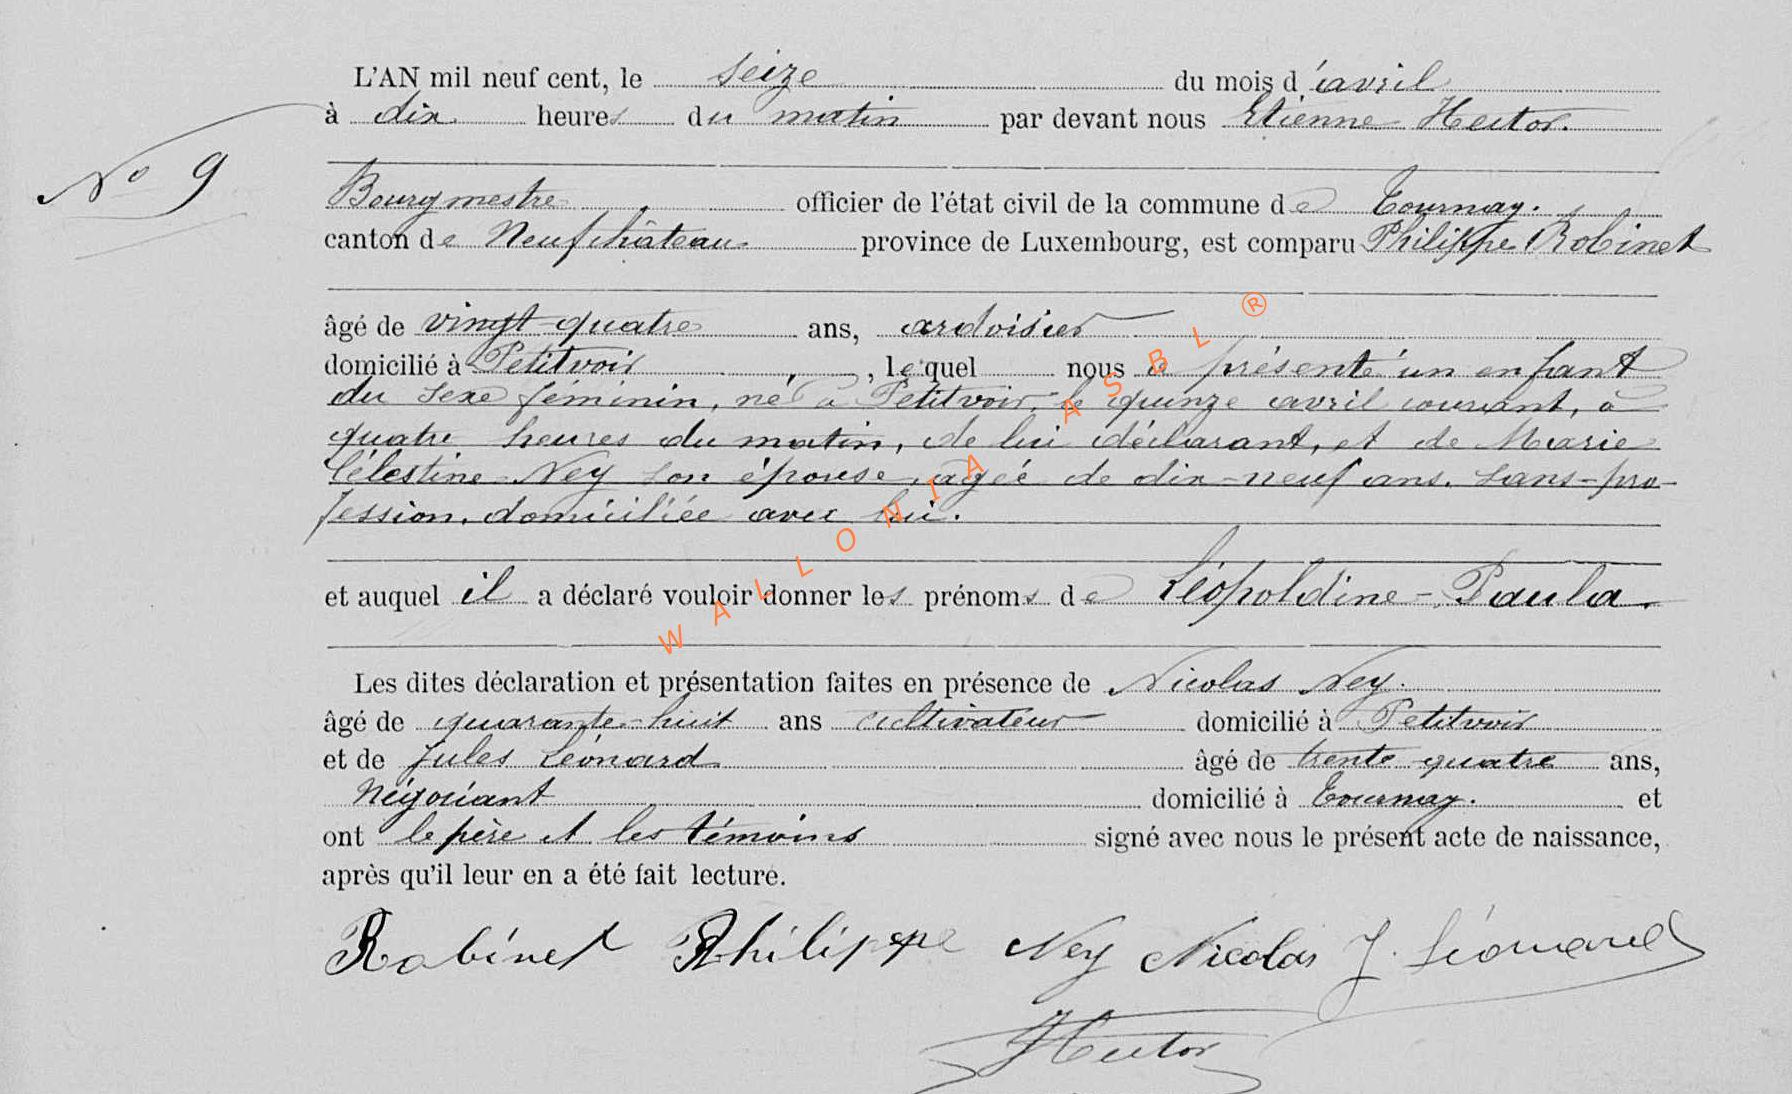 L'AN mil neuf cent, le seize du mois d'avril
à dix heures du matin par devant nous Etienne Hector.
N° 9
Bourgmestre officier de l'état civil de la commune de Tournay.
canton de Neufchâteau province de Luxembourg, est comparu Philippe Robinet
âgé de vingt-quatre ans, ardoisier
domicilié à Petitvoir, lequel nous a présenté un enfant
du sexe féminin, né à Petitvoir, le quinze avril courant, à
quatre heures du matin, de lui déclarant, et de Marie
Célestine Ney son épouse, agée de dix-neuf ans. sans-pro-
fession. domiciliée avec lui.
et auquel il a déclaré vouloir donner les prénoms de Léopoldine-Paula.
Les dites déclaration et présentation faites en présence de Nicolas Ney.
âgé de quarante-huit ans cultivateur domicilié à Petitvoir
et de Jules Léonard âgé de trente quatre ans,
Négociant domicilié à Tournay. et
ont le père et les témoins signé avec nous le présent acte de naissance,
après qu'il leur en a été fait lecture.
Robinet Philippe Ney Nicolas J. Léonard
Hector
WALLONIA ASBL ®